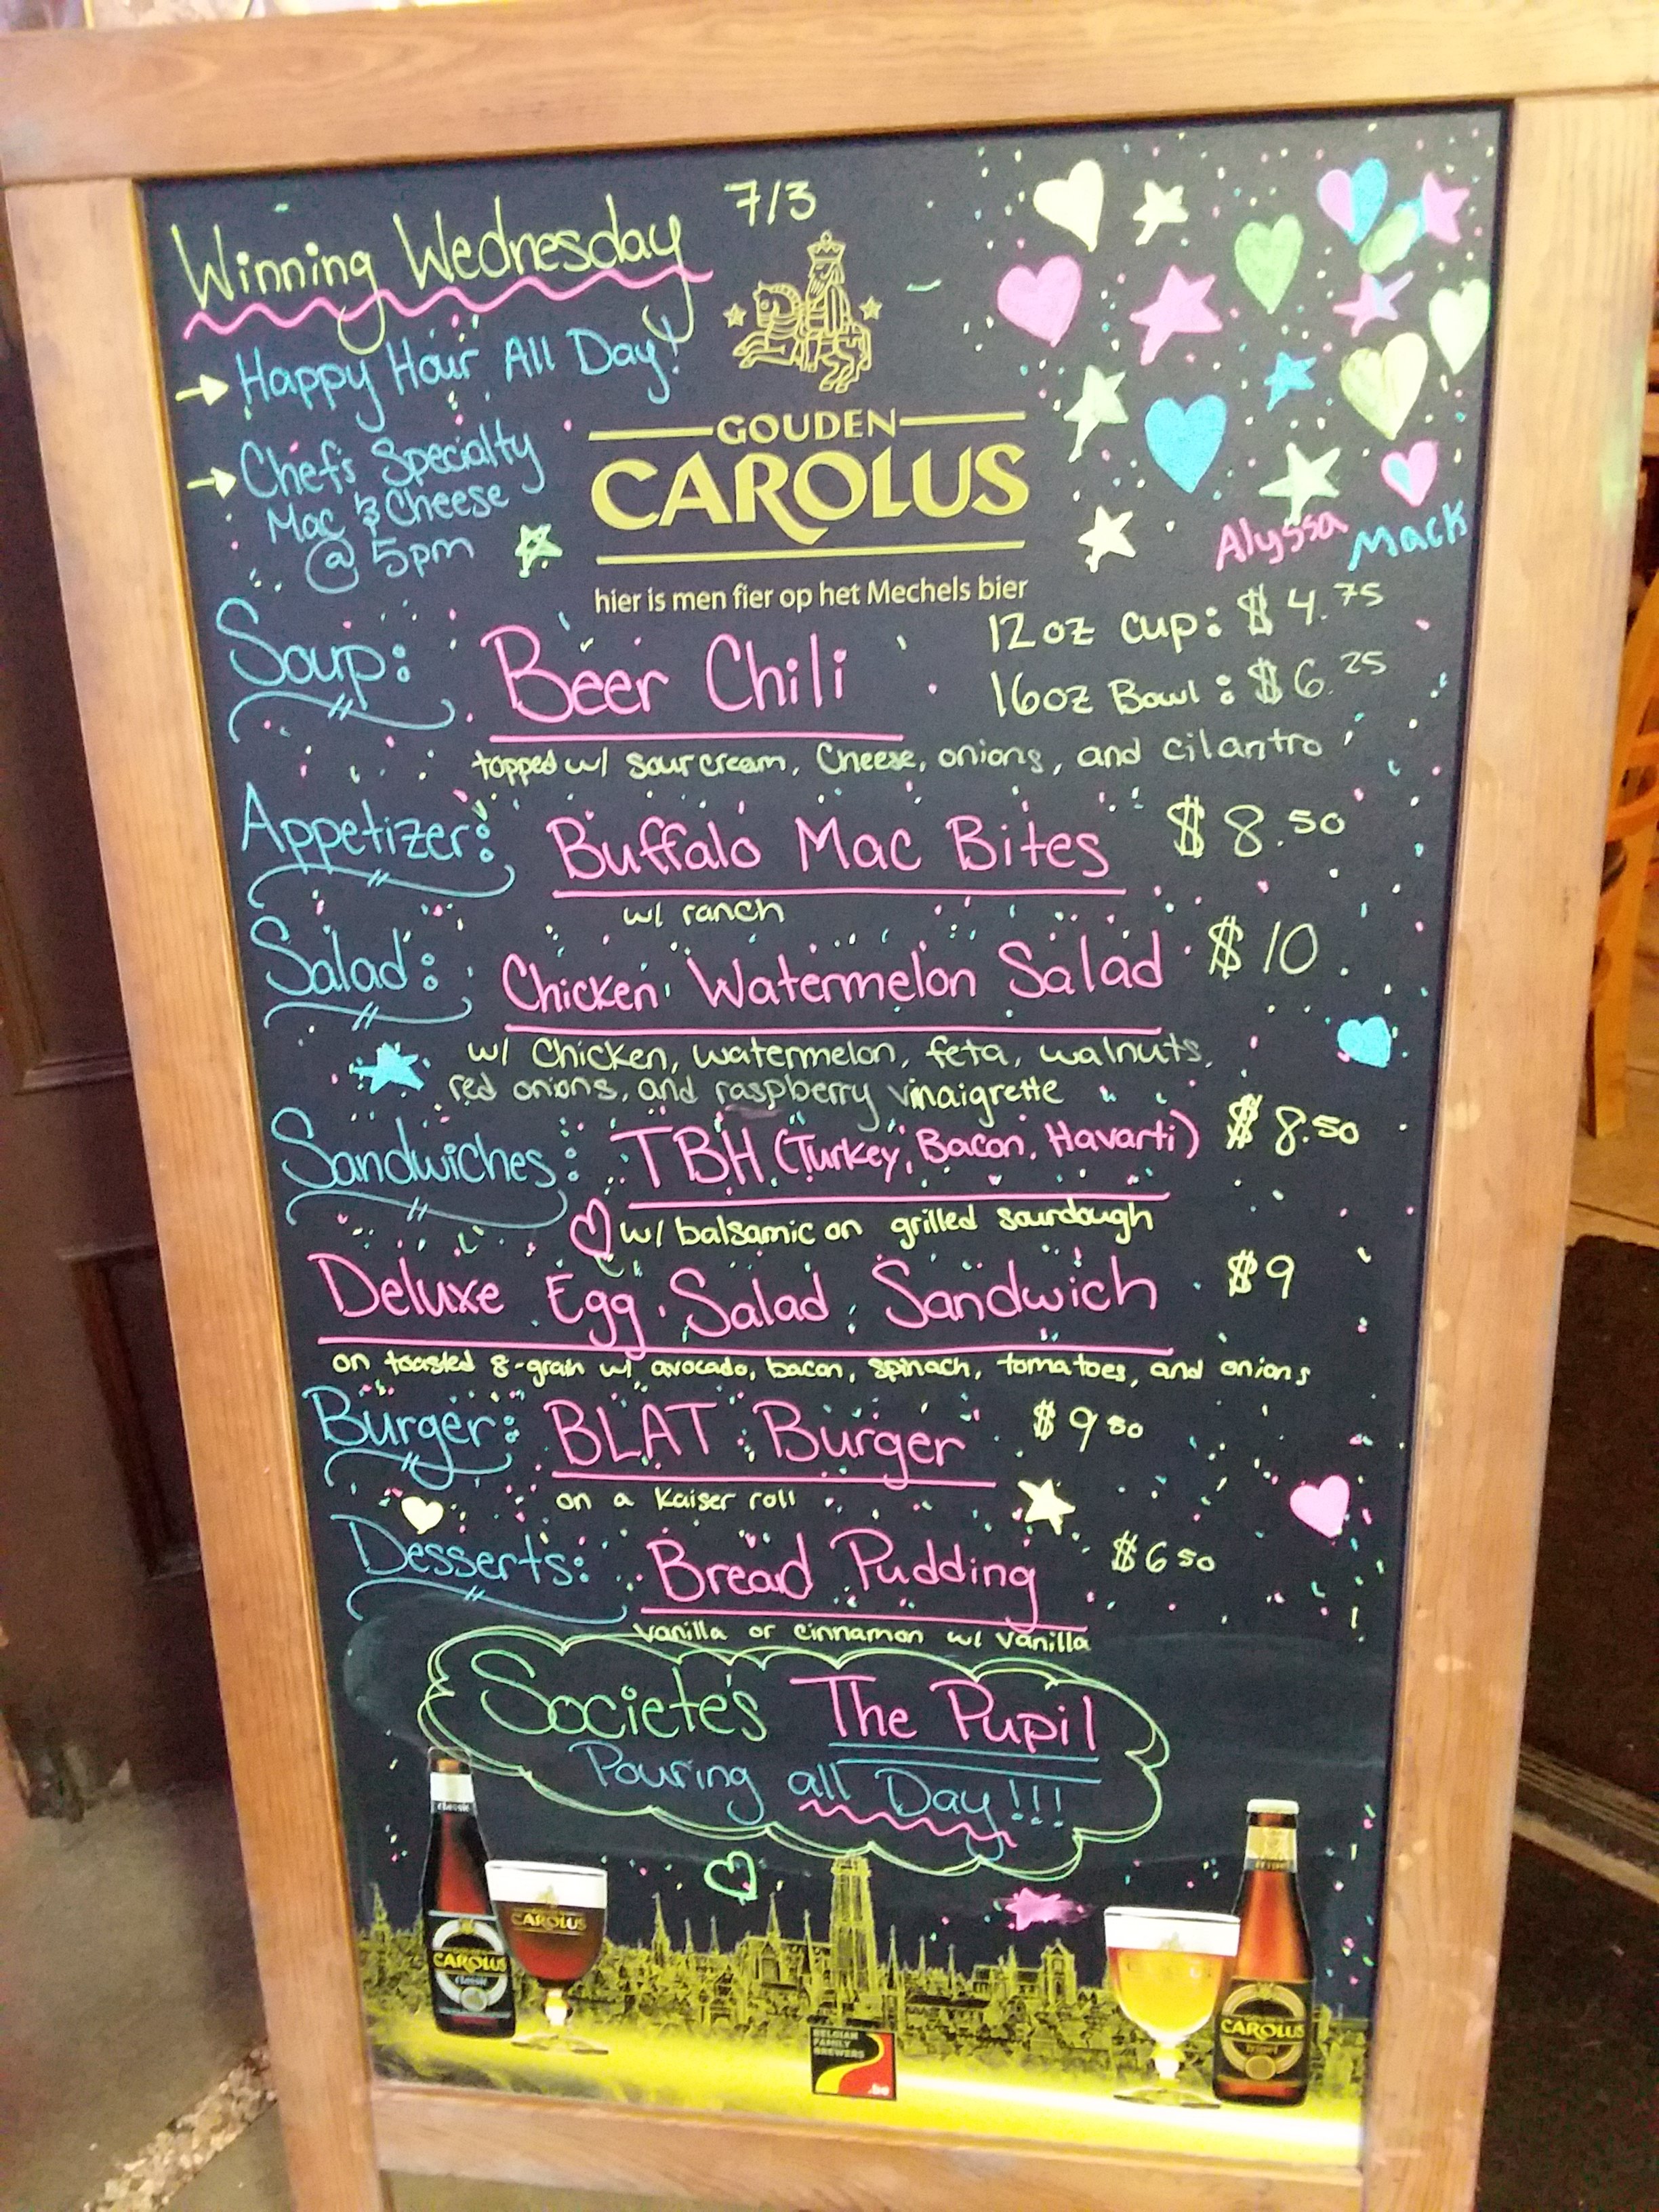 Winning Wednesday 7/3
→ Happy Hour All Day!
→ Chef's Specialty
Mac & Cheese
@ 5pm
GOUDEN
CAROLUS
hier is men fier op het Mechels bier
Alyssa Mack
Soup: Beer Chili
12oz cup: $4.75
16oz Bowl: $6.25
topped w/ sour cream, Cheese, onions, and cilantro
Appetizer: Buffalo Mac Bites $8.50
w/ ranch
Salad: Chicken Watermelon Salad $10
w/ Chicken, watermelon, feta, walnuts,
red onions, and raspberry vinaigrette
Sandwiches: TBH (Turkey, Bacon, Havarti) $8.50
w/ balsamic on grilled sourdough
Deluxe Egg Salad Sandwich $9
on toasted 8-grain w/ avocado, bacon, spinach, tomatoes, and onions
Burger: BLAT Burger $9.50
on a Kaiser roll
Desserts: Bread Pudding $6.50
Vanilla or cinnamon w/ Vanilla
Societe's The Pupil
Pouring all Day!!!
classic
CAROLUS
classic
CAROLUS
CAROLUS
BELGIAN
FAMILY
BREWERS
.be